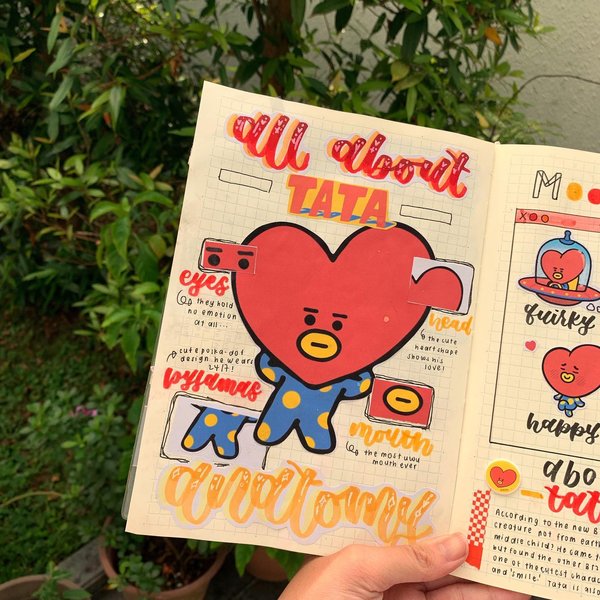 all about
TATA
eyes
they hold
no emotion
at all...
head
the cute
heart shape
shows his
love!
cute polka-dot
design he wears
24/7!
pyjamas
mouth
the most uwu
mouth ever
anatomy
MOO
XOO
quirky
happy
abo
tat
According to the new B
creature not from earth
middle child? He came t
but found the other B
one of the cutest charac
and 'smile.' Tata is also